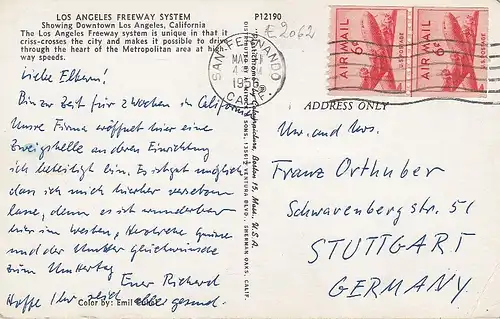 LOS ANGELES FREEWAY SYSTEM
Showing Downtown Los Angeles, California
The Los Angeles Freeway system is unique in that it
criss-crosses the city and makes it possible to drive
through the heart of the Metropolitan area at high-
way speeds.
P12190
£2062
Liebe Eltern!
Bin zur Zeit für 2 Wochen in California
Unsre Firma eröffnet hier eine
Zweigstelle an deren Einrichtung
ich beteiligt bin. Es ist gut möglich
dass ich mich hierher versetzen
lasse, denn es ist wunderbar
hier im Westen. Herzliche Grüsse
und der Mutter Glückwünsche
zum Muttertag
Euer Richard
Hoffe Ihr seid alle gesund.
Color by: Emil
SAN FERNANDO
CALIF.
AIR MAIL
6¢
U.S. POSTAGE
AIR MAIL
6¢
U.S. POSTAGE
ADDRESS ONLY
Franz Orthuber
Schwarenbergstr. 51
STUTTGART
GERMANY